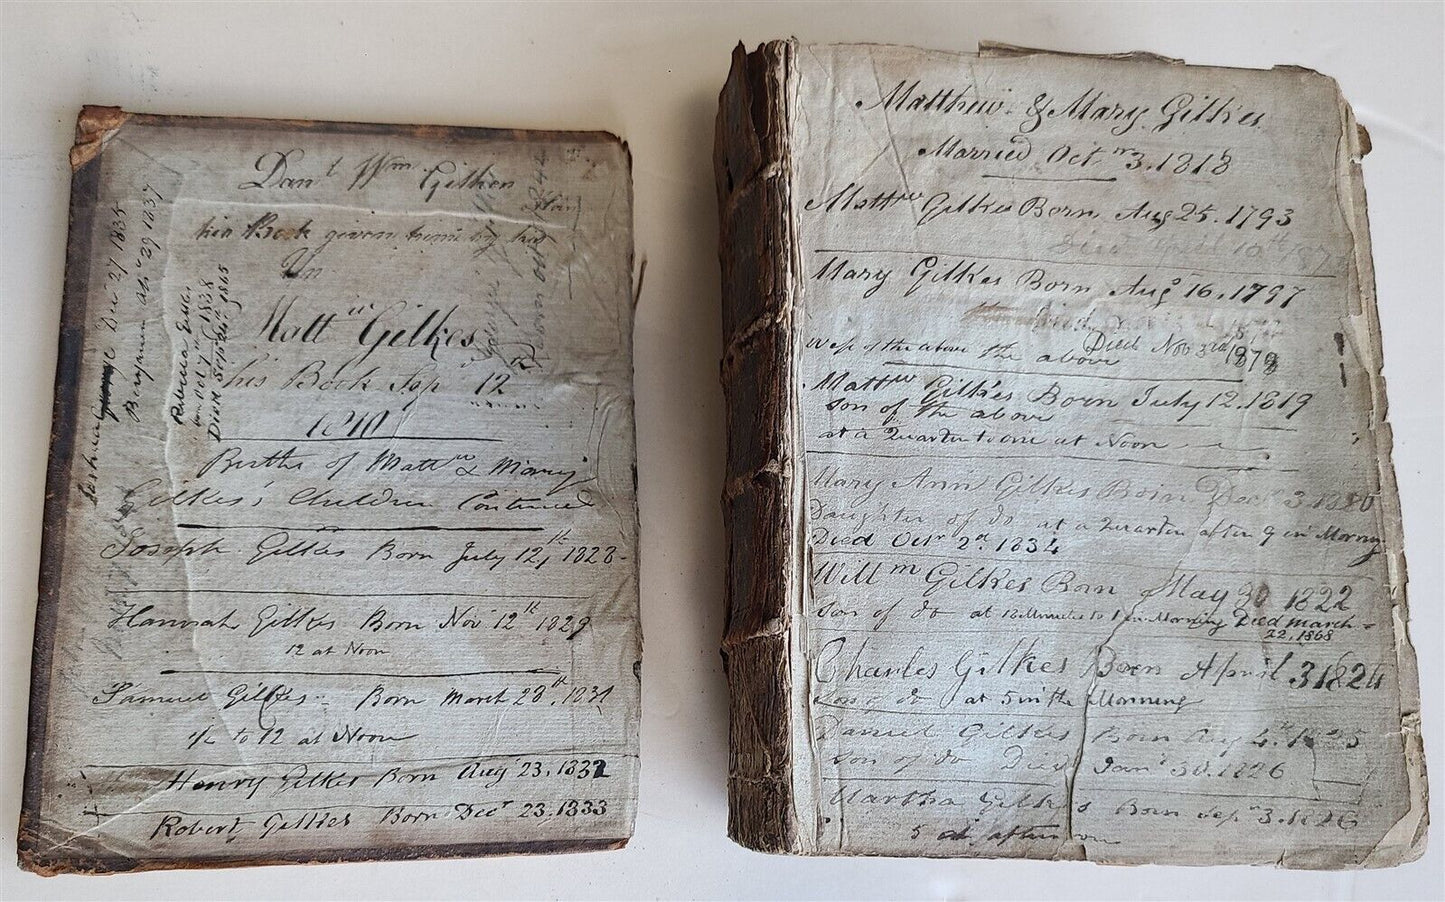 Dan.t Wm. Gilkes
his Book given him by his
Matt.w Gilkes
his Book Sep.r 12
1810
Births of Matt.w & Marry
Gilkes's Children Continued
Joseph Gilkes Born July 12th, 1828
Hannah Gilkes Born Nov 12th 1829
12 at Noon
Samuel Gilkes - Born March 28th, 1831
1/2 to 12 at Noon
Henry Gilkes Born Aug 23, 1832
Robert Gilkes Born Decr 23. 1833
Joshua Decr 27 1835
Benjamin 29 1837
Rebecca Gilkes
born Oct 7th 1838
Died Sep 24th 1865
Matthew & Mary Gilkes
Married Oct 3. 1818
Matt.w Gilkes Born Aug 25. 1793
Died April 10th 187
Mary Gilkes Born Aug 16. 1797
Died Nov 3rd 1878
wife of the above the above
Matt.w Gilkes Born July 12. 1819
son of the above
at a Quarter to one at Noon
Mary Ann Gilkes Born Decr 3. 1820
Daughter of do at a Quarter after 9 in Morning
Died Octr 2d. 1834
Willm Gilkes Born May 30 1822
son of do at 12 Minutes to 1 in Morning Died march
22, 1868
Charles Gilkes Born April 3 1824
Son of do at 5 in the Morning
Daniel Gilkes Born Aug 4th 1825
son of do Died Jan.y 30. 1826
Martha Gilkes Born Sepr 3. 1826
5 in afternoon